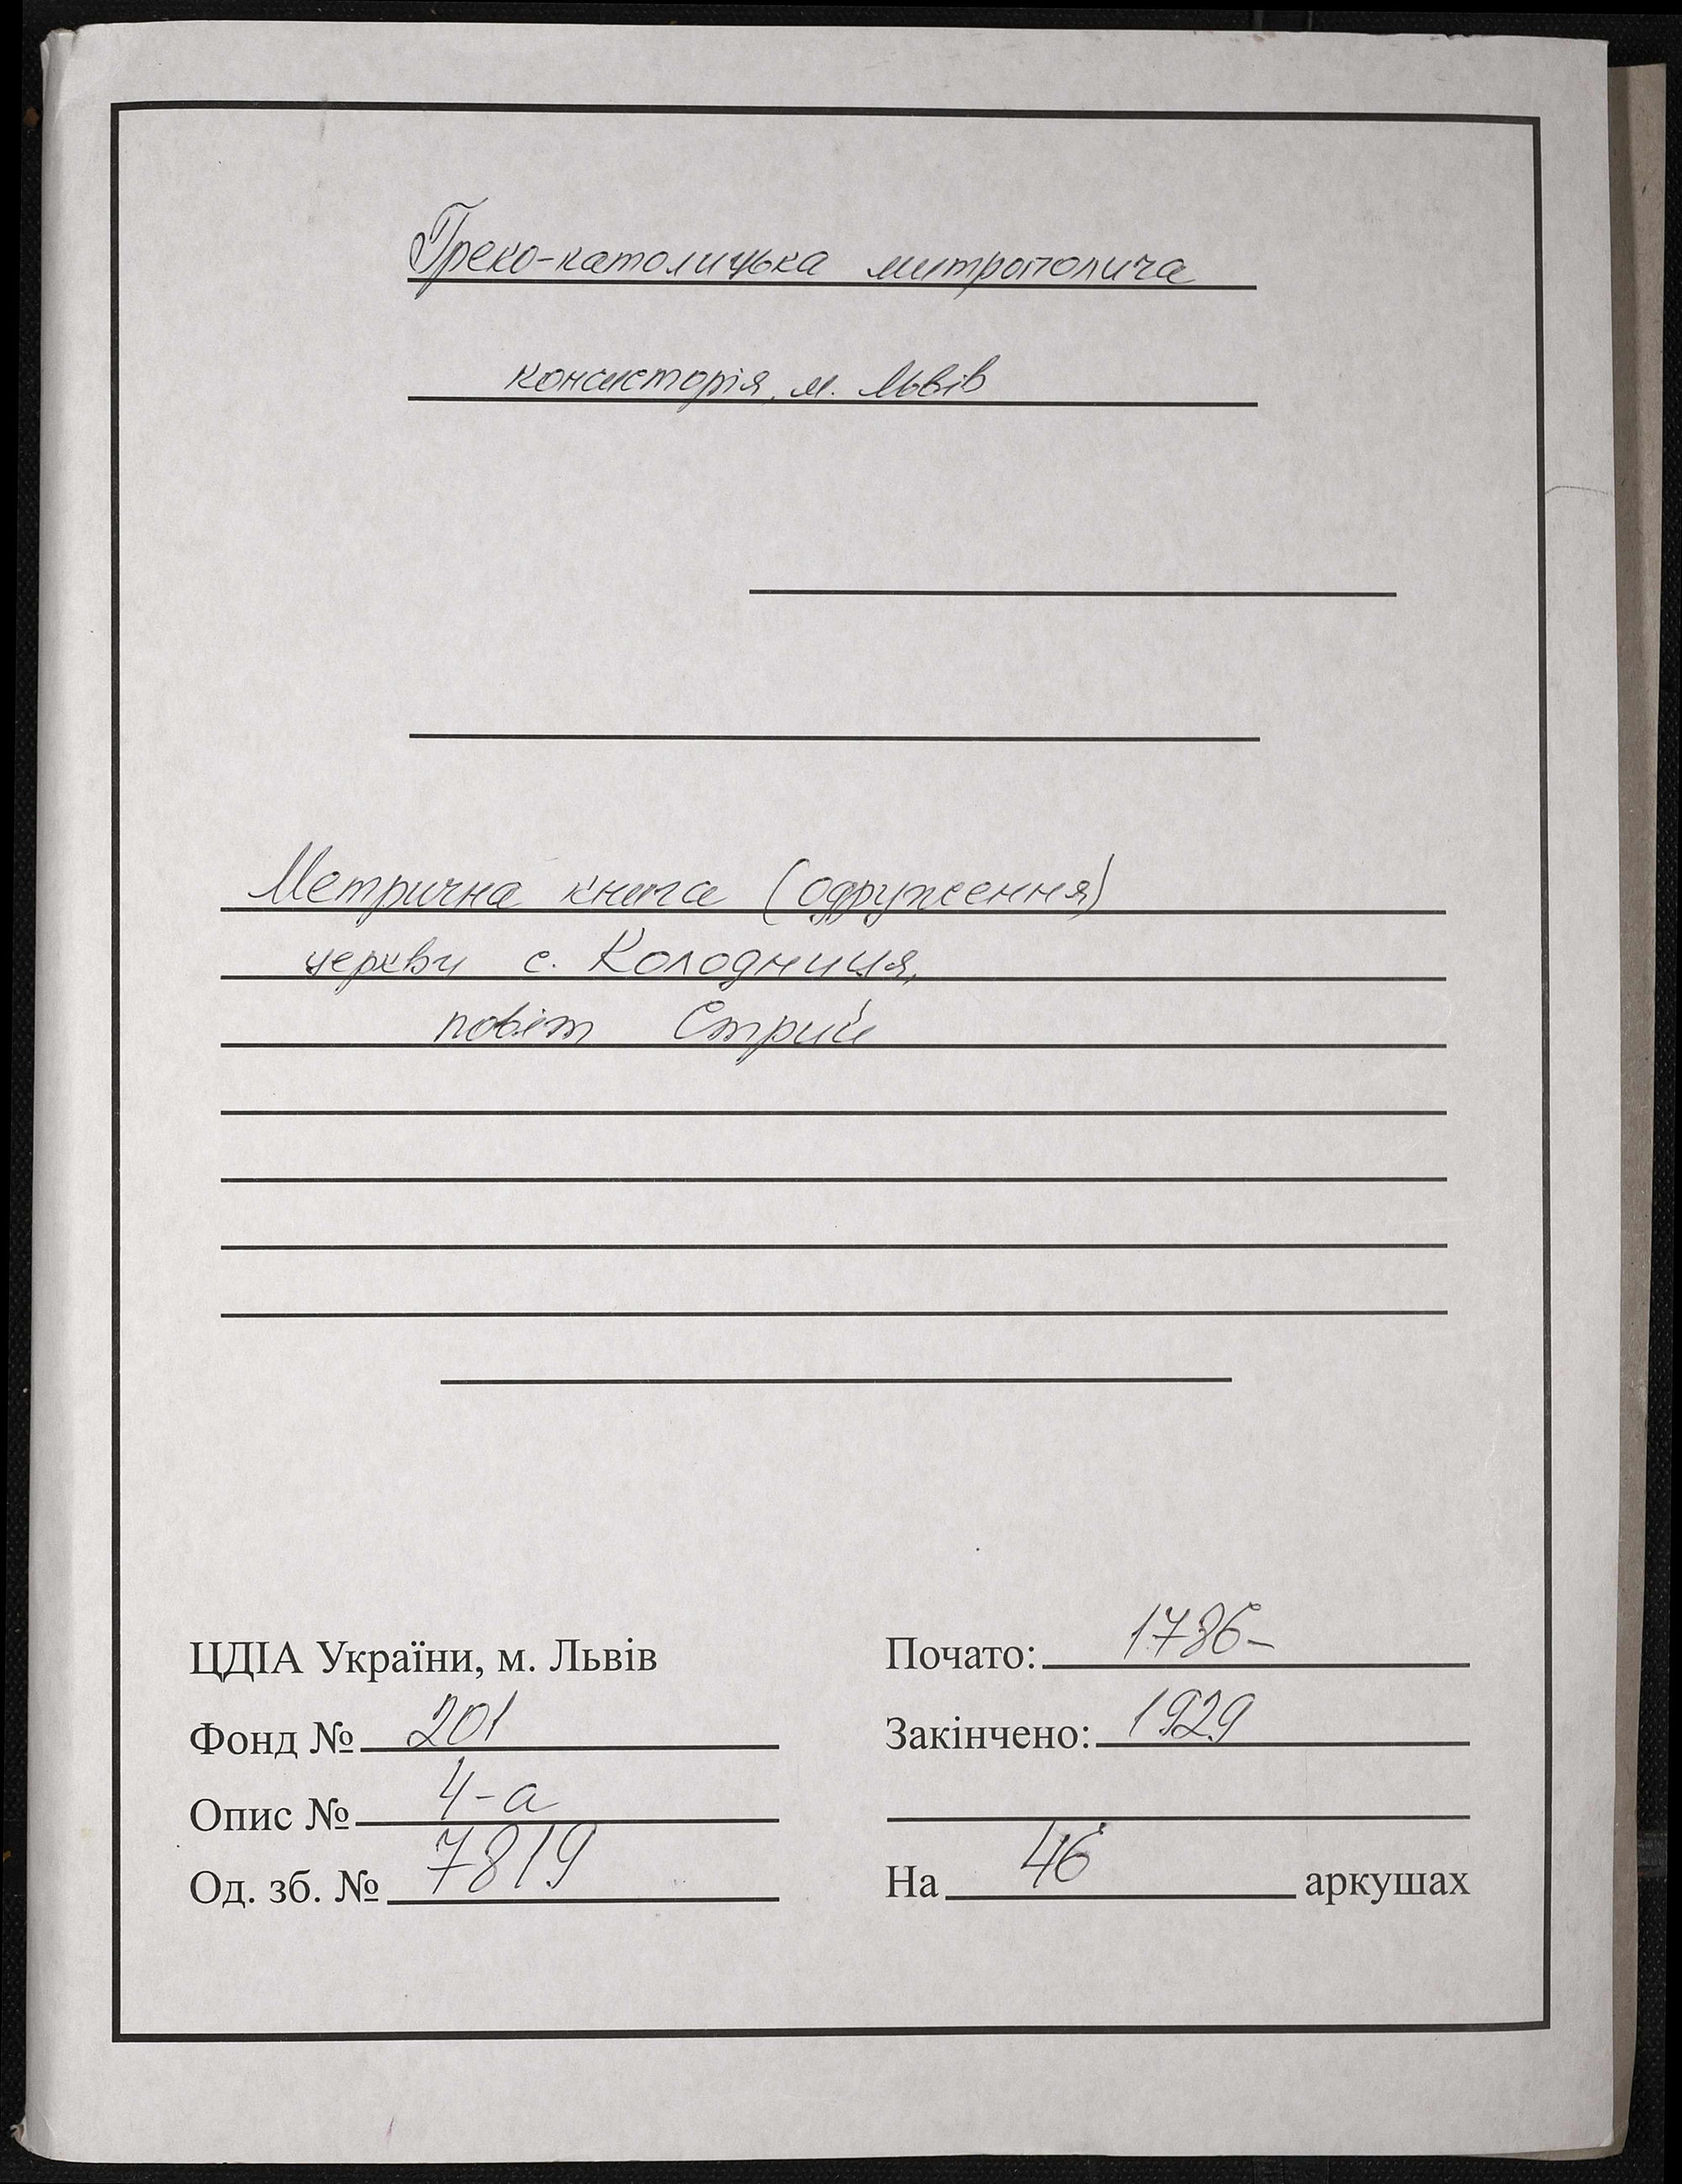 Греко-католицька митрополича
консисторія, м. Львів
Метрична книга (одруження)
церкви с. Колодниця,
повіт Стрий
ЦДІА України, м. Львів
Фонд № 201
Опис № 4-а
Од. зб. № 7819
Почато: 1786-
Закінчено: 1929
На 46 аркушах